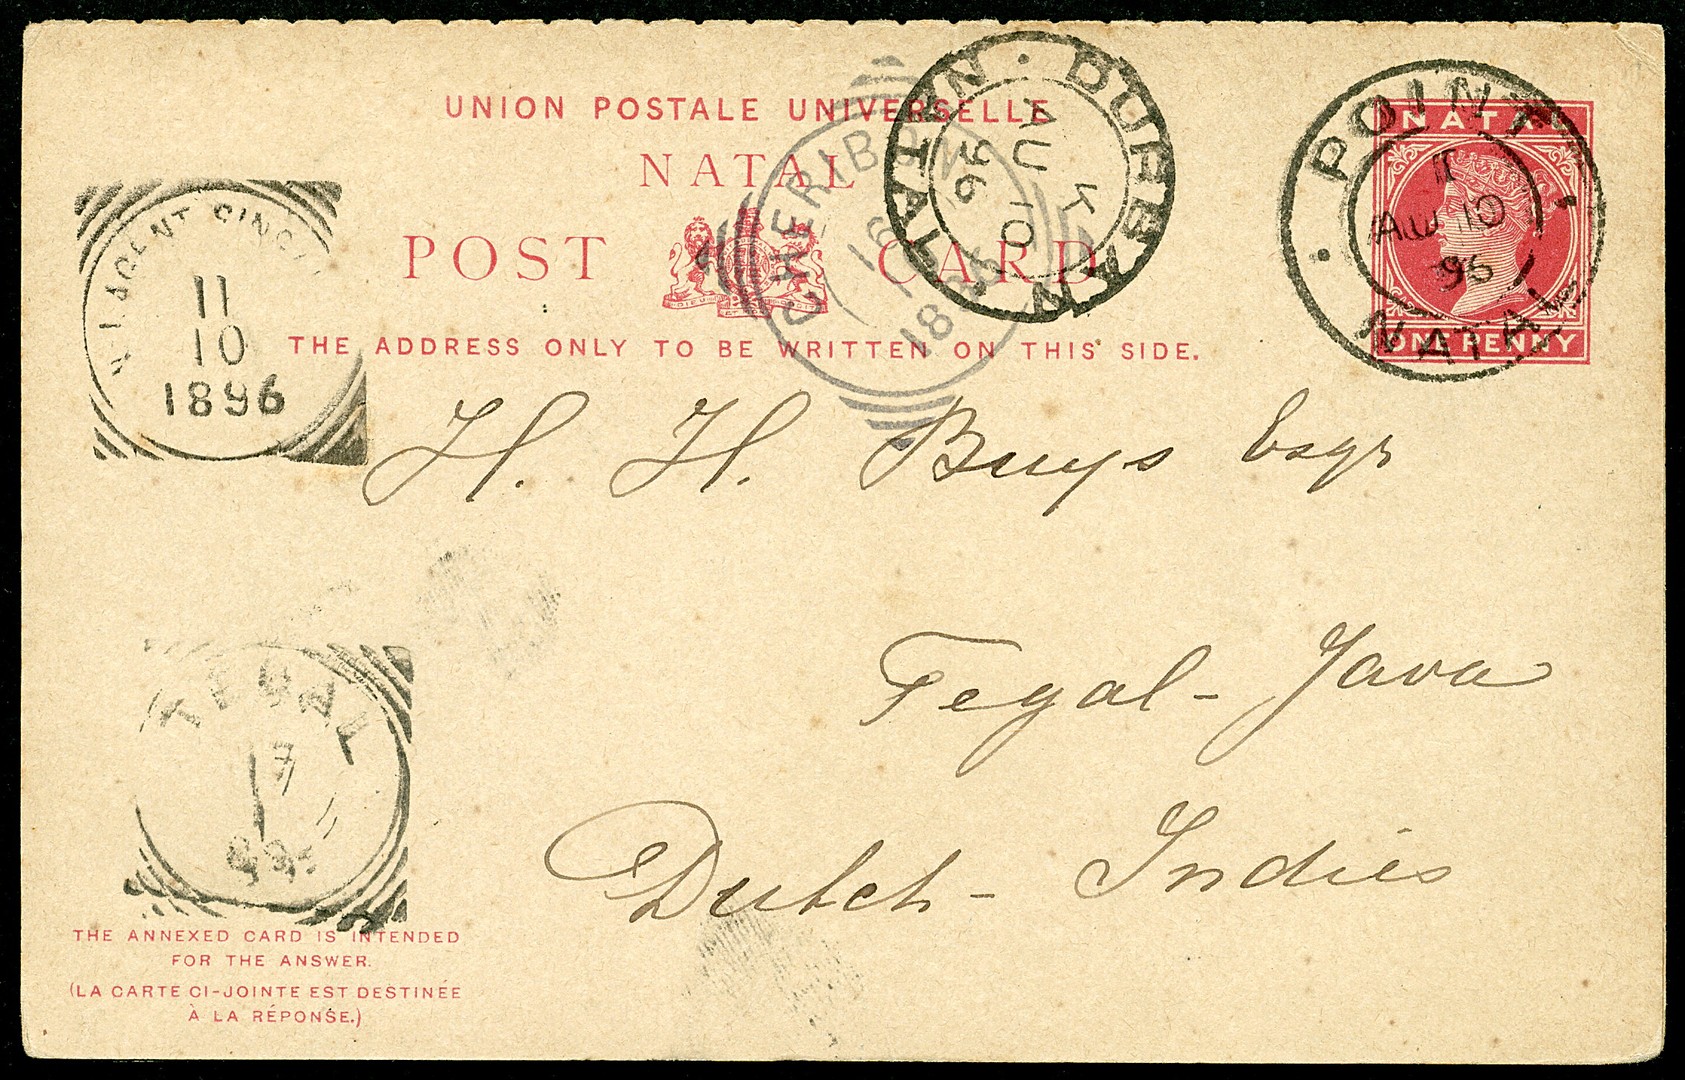 UNION POSTALE UNIVERSELLE
NATAL
POST CARD
THE ADDRESS ONLY TO BE WRITTEN ON THIS SIDE.
NATAL
ONE PENNY
POINT
AU 10
96
NATAL
DURBAN · NATAL
K
AU 10
96
WERIB
N.I. AGENT SING
11
10
1896
H. H. Buys Esqr
Tegal - Java
Dutch - Indies
TEGAL
THE ANNEXED CARD IS INTENDED
FOR THE ANSWER.
(LA CARTE CI-JOINTE EST DESTINÉE
À LA RÉPONSE.)